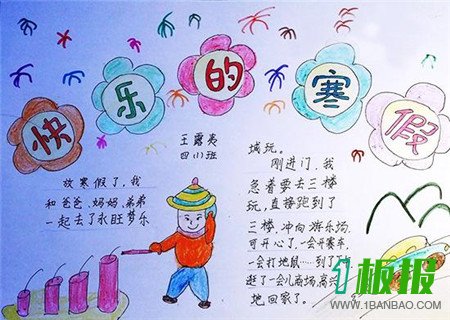 快乐的寒假
王露夷
四(1)班
放寒假了,我
和爸爸、妈妈、弟弟
一起去了永旺梦乐
城玩。
刚进门,我
急着要去三楼
玩,直接跑到了
三楼,冲向游乐场,
可开心了,一会开赛车,
一会打地鼠……到了
逛了一会儿商场,高兴
地回家了。
1板报
WWW.1BANBAO.COM